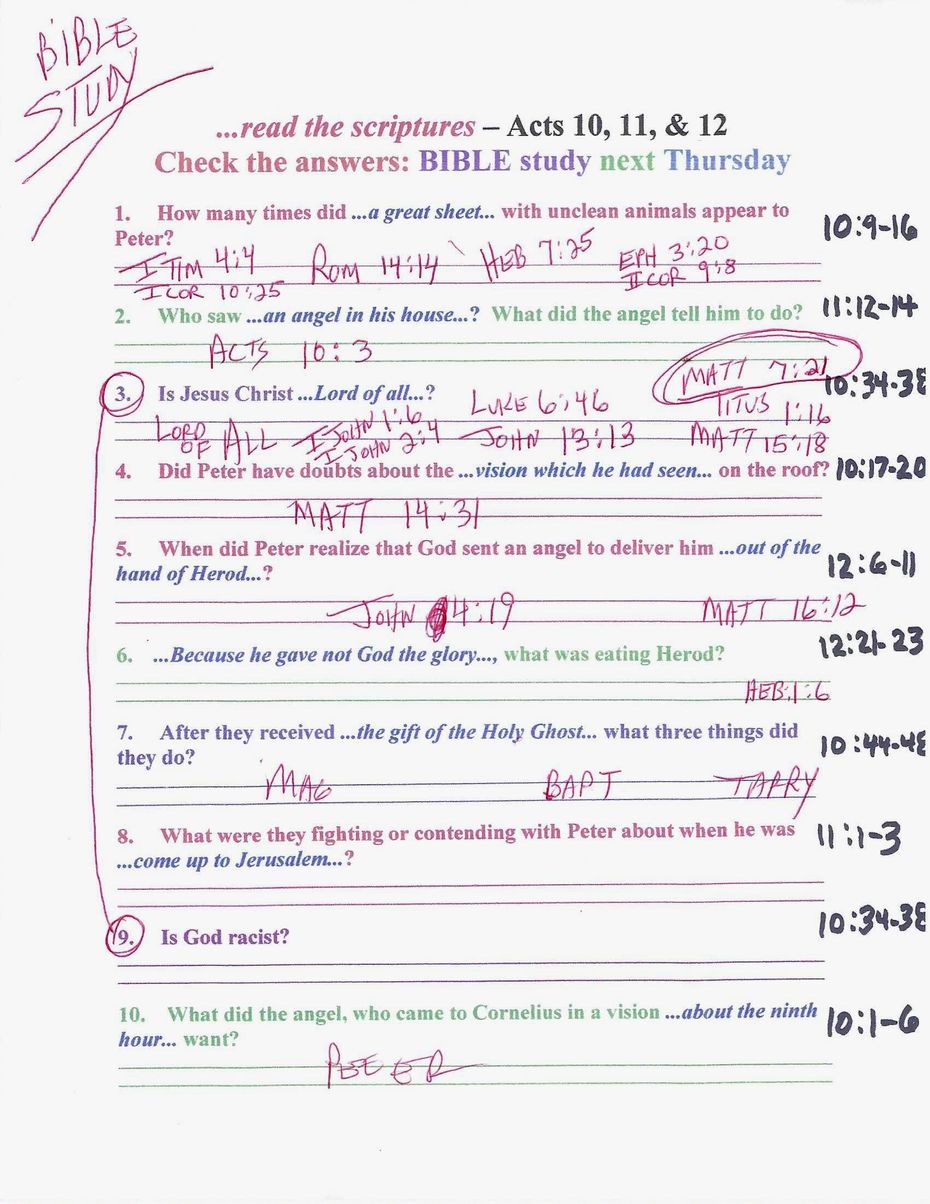 BIBLE
STUDY
...read the scriptures – Acts 10, 11, & 12
Check the answers: BIBLE study next Thursday
1. How many times did ...a great sheet... with unclean animals appear to
Peter?
10:9-16
I TIM 4:4 ROM 14:14 HEB 7:25 EPH 3:20
I COR 10:25 II COR 9:8
2. Who saw ...an angel in his house...? What did the angel tell him to do? 11:12-14
ACTS 10:3
MATT 7:21
3. Is Jesus Christ ...Lord of all...? 10:34-38
LUKE 6:46 TITUS 1:16
LORD OF ALL I JOHN 1:6 JOHN 13:13 MATT 15:18
I JOHN 2:4
4. Did Peter have doubts about the ...vision which he had seen... on the roof? 10:17-20
MATT 14:31
5. When did Peter realize that God sent an angel to deliver him ...out of the
hand of Herod...? 12:6-11
JOHN 4:19 MATT 16:12
6. ...Because he gave not God the glory..., what was eating Herod? 12:21-23
HEB:1:6
7. After they received ...the gift of the Holy Ghost... what three things did
they do? 10:44-48
MAG BAPT TARRY
8. What were they fighting or contending with Peter about when he was 11:1-3
...come up to Jerusalem...?
9. Is God racist? 10:34-38
10. What did the angel, who came to Cornelius in a vision ...about the ninth
hour... want? 10:1-6